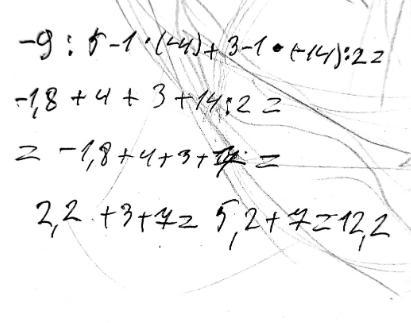 -9 : 5-1·(-4)+3-1·(-14):2=
-1,8+4+3+14:2=
= -1,8+4+3+7=
2,2+3+7= 5,2+7=12,2